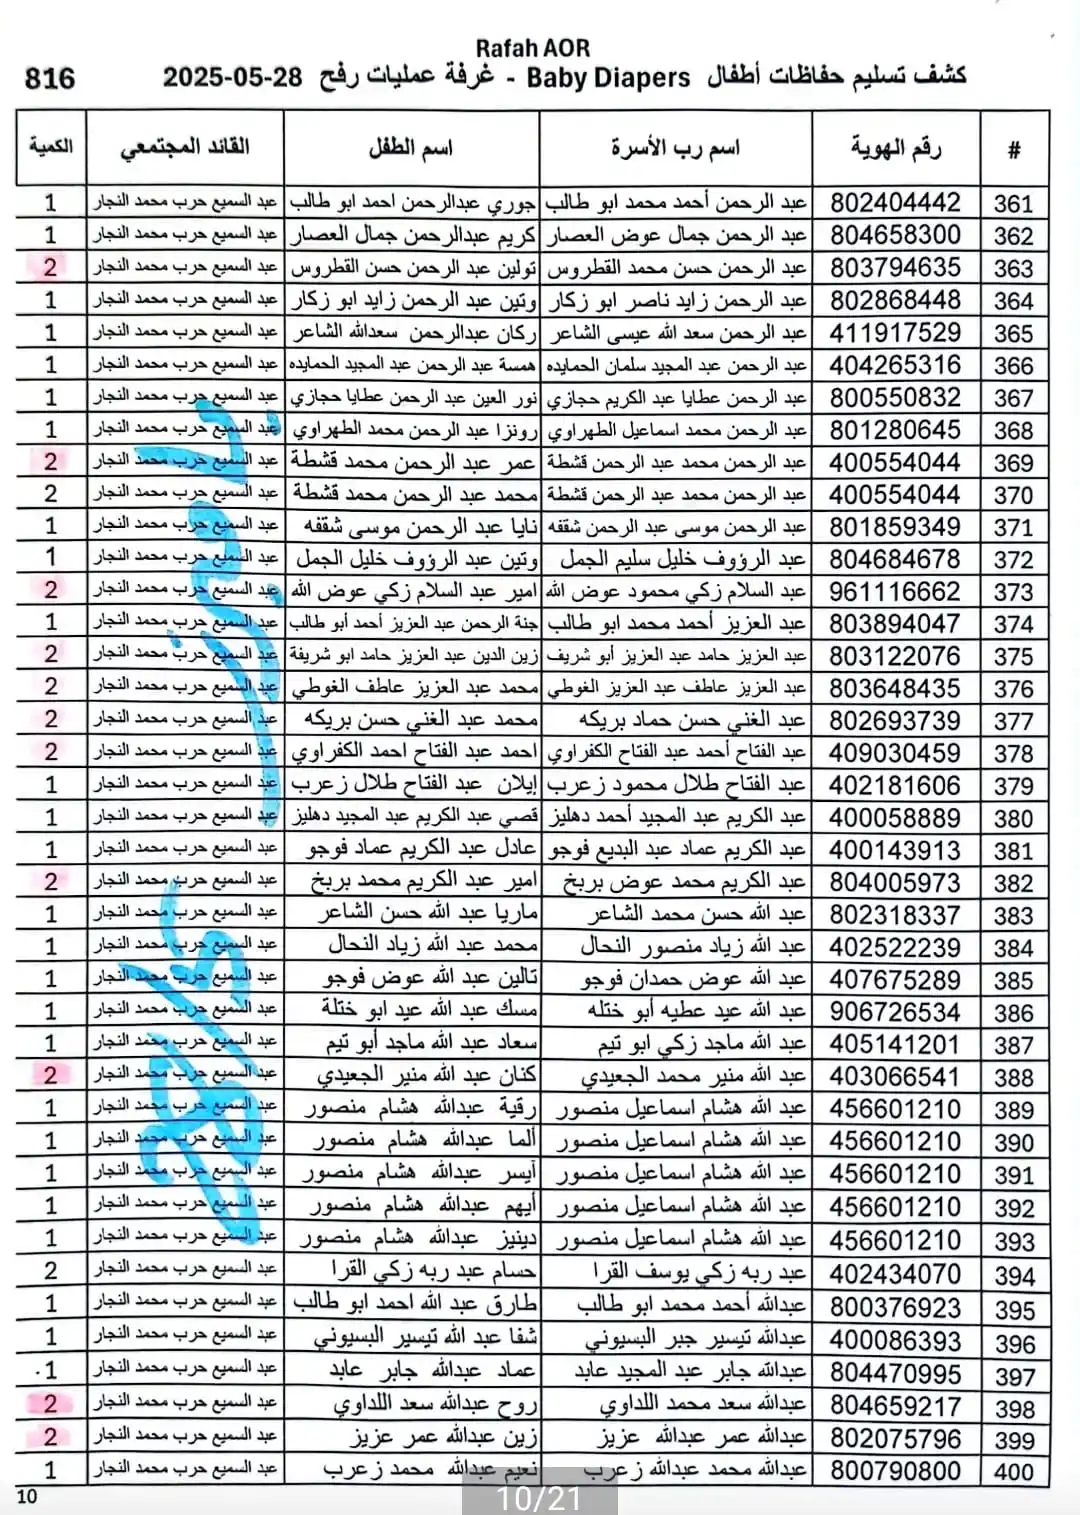 Rafah AOR
816 كشف تسليم حفاظات أطفال Baby Diapers - غرفة عمليات رفح 28-05-2025
# رقم الهوية اسم رب الأسرة اسم الطفل القائد المجتمعي الكمية
361 802404442 عبد الرحمن أحمد محمد ابو طالب جوري عبدالرحمن احمد ابو طالب عبد السميع حرب محمد النجار 1
362 804658300 عبد الرحمن جمال عوض العصار كريم عبدالرحمن جمال العصار عبد السميع حرب محمد النجار 1
363 803794635 عبد الرحمن حسن محمد القطروس تولين عبد الرحمن حسن القطروس عبد السميع حرب محمد النجار 2
364 802868448 عبد الرحمن زايد ناصر ابو زكار وتين عبد الرحمن زايد ابو زكار عبد السميع حرب محمد النجار 1
365 411917529 عبد الرحمن سعد الله عيسى الشاعر ركان عبدالرحمن سعدالله الشاعر عبد السميع حرب محمد النجار 1
366 404265316 عبد الرحمن عبد المجيد سلمان الحمايده همسة عبد الرحمن عبد المجيد الحمايده عبد السميع حرب محمد النجار 1
367 800550832 عبد الرحمن عطايا عبد الكريم حجازي نور العين عبد الرحمن عطايا حجازي عبد السميع حرب محمد النجار 1
368 801280645 عبد الرحمن محمد اسماعيل الطهراوي رونزا عبد الرحمن محمد الطهراوي عبد السميع حرب محمد النجار 1
369 400554044 عبد الرحمن محمد عبد الرحمن قشطة عمر عبد الرحمن محمد قشطة عبد السميع حرب محمد النجار 2
370 400554044 عبد الرحمن محمد عبد الرحمن قشطة محمد عبد الرحمن محمد قشطة عبد السميع حرب محمد النجار 2
371 801859349 عبد الرحمن موسى عبد الرحمن شقفه نايا عبد الرحمن موسى شقفه عبد السميع حرب محمد النجار 1
372 804684678 عبد الرؤوف خليل سليم الجمل وتين عبد الرؤوف خليل الجمل عبد السميع حرب محمد النجار 1
373 961116662 عبد السلام زكي محمود عوض الله امير عبد السلام زكي عوض الله عبد السميع حرب محمد النجار 2
374 803894047 عبد العزيز أحمد محمد ابو طالب جنة الرحمن عبد العزيز أحمد أبو طالب عبد السميع حرب محمد النجار 1
375 803122076 عبد العزيز حامد عبد العزيز أبو شريف زين الدين عبد العزيز حامد ابو شريفة عبد السميع حرب محمد النجار 2
376 803648435 عبد العزيز عاطف عبد العزيز الغوطي محمد عبد العزيز عاطف الغوطي عبد السميع حرب محمد النجار 2
377 802693739 عبد الغني حسن حماد بريكه محمد عبد الغني حسن بريكه عبد السميع حرب محمد النجار 2
378 409030459 عبد الفتاح أحمد عبد الفتاح الكفراوي احمد عبد الفتاح احمد الكفراوي عبد السميع حرب محمد النجار 2
379 402181606 عبد الفتاح طلال محمود زعرب إيلان عبد الفتاح طلال زعرب عبد السميع حرب محمد النجار 1
380 400058889 عبد الكريم عبد المجيد أحمد دهليز قصي عبد الكريم عبد المجيد دهليز عبد السميع حرب محمد النجار 1
381 400143913 عبد الكريم عماد عبد البديع فوجو عادل عبد الكريم عماد فوجو عبد السميع حرب محمد النجار 1
382 804005973 عبد الكريم محمد عوض بربخ امير عبد الكريم محمد بربخ عبد السميع حرب محمد النجار 2
383 802318337 عبد الله حسن محمد الشاعر ماريا عبد الله حسن الشاعر عبد السميع حرب محمد النجار 1
384 402522239 عبد الله زياد منصور النحال محمد عبد الله زياد النحال عبد السميع حرب محمد النجار 1
385 407675289 عبد الله عوض حمدان فوجو تالين عبد الله عوض فوجو عبد السميع حرب محمد النجار 1
386 906726534 عبد الله عيد عطيه أبو ختله مسك عبد الله عيد ابو ختلة عبد السميع حرب محمد النجار 1
387 405141201 عبد الله ماجد زكي ابو تيم سعاد عبد الله ماجد أبو تيم عبد السميع حرب محمد النجار 1
388 403066541 عبد الله منير محمد الجعيدي كنان عبد الله منير الجعيدي عبد السميع حرب محمد النجار 2
389 456601210 عبد الله هشام اسماعيل منصور رقية عبدالله هشام منصور عبد السميع حرب محمد النجار 1
390 456601210 عبد الله هشام اسماعيل منصور ألما عبدالله هشام منصور عبد السميع حرب محمد النجار 1
391 456601210 عبد الله هشام اسماعيل منصور آيسر عبدالله هشام منصور عبد السميع حرب محمد النجار 1
392 456601210 عبد الله هشام اسماعيل منصور أيهم عبدالله هشام منصور عبد السميع حرب محمد النجار 1
393 456601210 عبد الله هشام اسماعيل منصور دينيز عبدالله هشام منصور عبد السميع حرب محمد النجار 1
394 402434070 عبد ربه زكي يوسف القرا حسام عبد ربه زكي القرا عبد السميع حرب محمد النجار 2
395 800376923 عبدالله أحمد محمد ابو طالب طارق عبد الله احمد ابو طالب عبد السميع حرب محمد النجار 1
396 400086393 عبدالله تيسير جبر البسيوني شفا عبد الله تيسير البسيوني عبد السميع حرب محمد النجار 1
397 804470995 عبدالله جابر عبد المجيد عابد عماد عبدالله جابر عابد عبد السميع حرب محمد النجار 1
398 804659217 عبدالله سعد محمد اللداوي روح عبدالله سعد اللداوي عبد السميع حرب محمد النجار 2
399 802075796 عبدالله عمر عبدالله عزيز زين عبدالله عمر عزيز عبد السميع حرب محمد النجار 2
400 800790800 عبدالله محمد عبدالله زعرب نعيم عبدالله محمد زعرب عبد السميع حرب محمد النجار 1
28/5
10
10/21